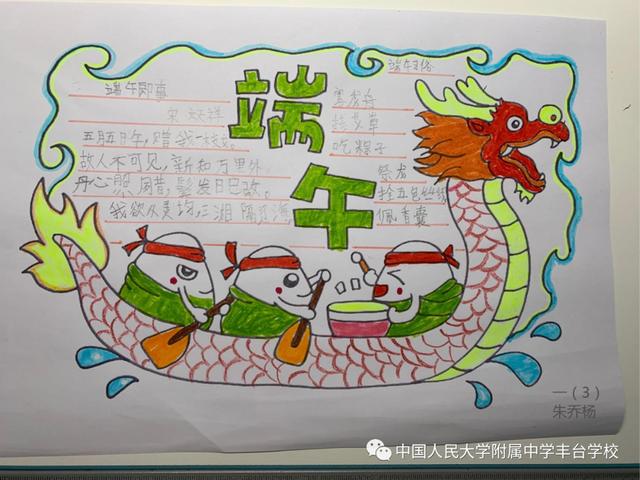 端午
端午即事
宋 文天祥
五月五日午，赠我一枝艾。
故人不可见，新知万里外。
丹心照夙昔，鬓发日已改。
我欲从灵均，三湘隔辽海
端午习俗
赛龙舟
挂艾草
吃粽子
祭龙
拴五色丝线
佩香囊
一（3）
朱乔杨
中国人民大学附属中学丰台学校